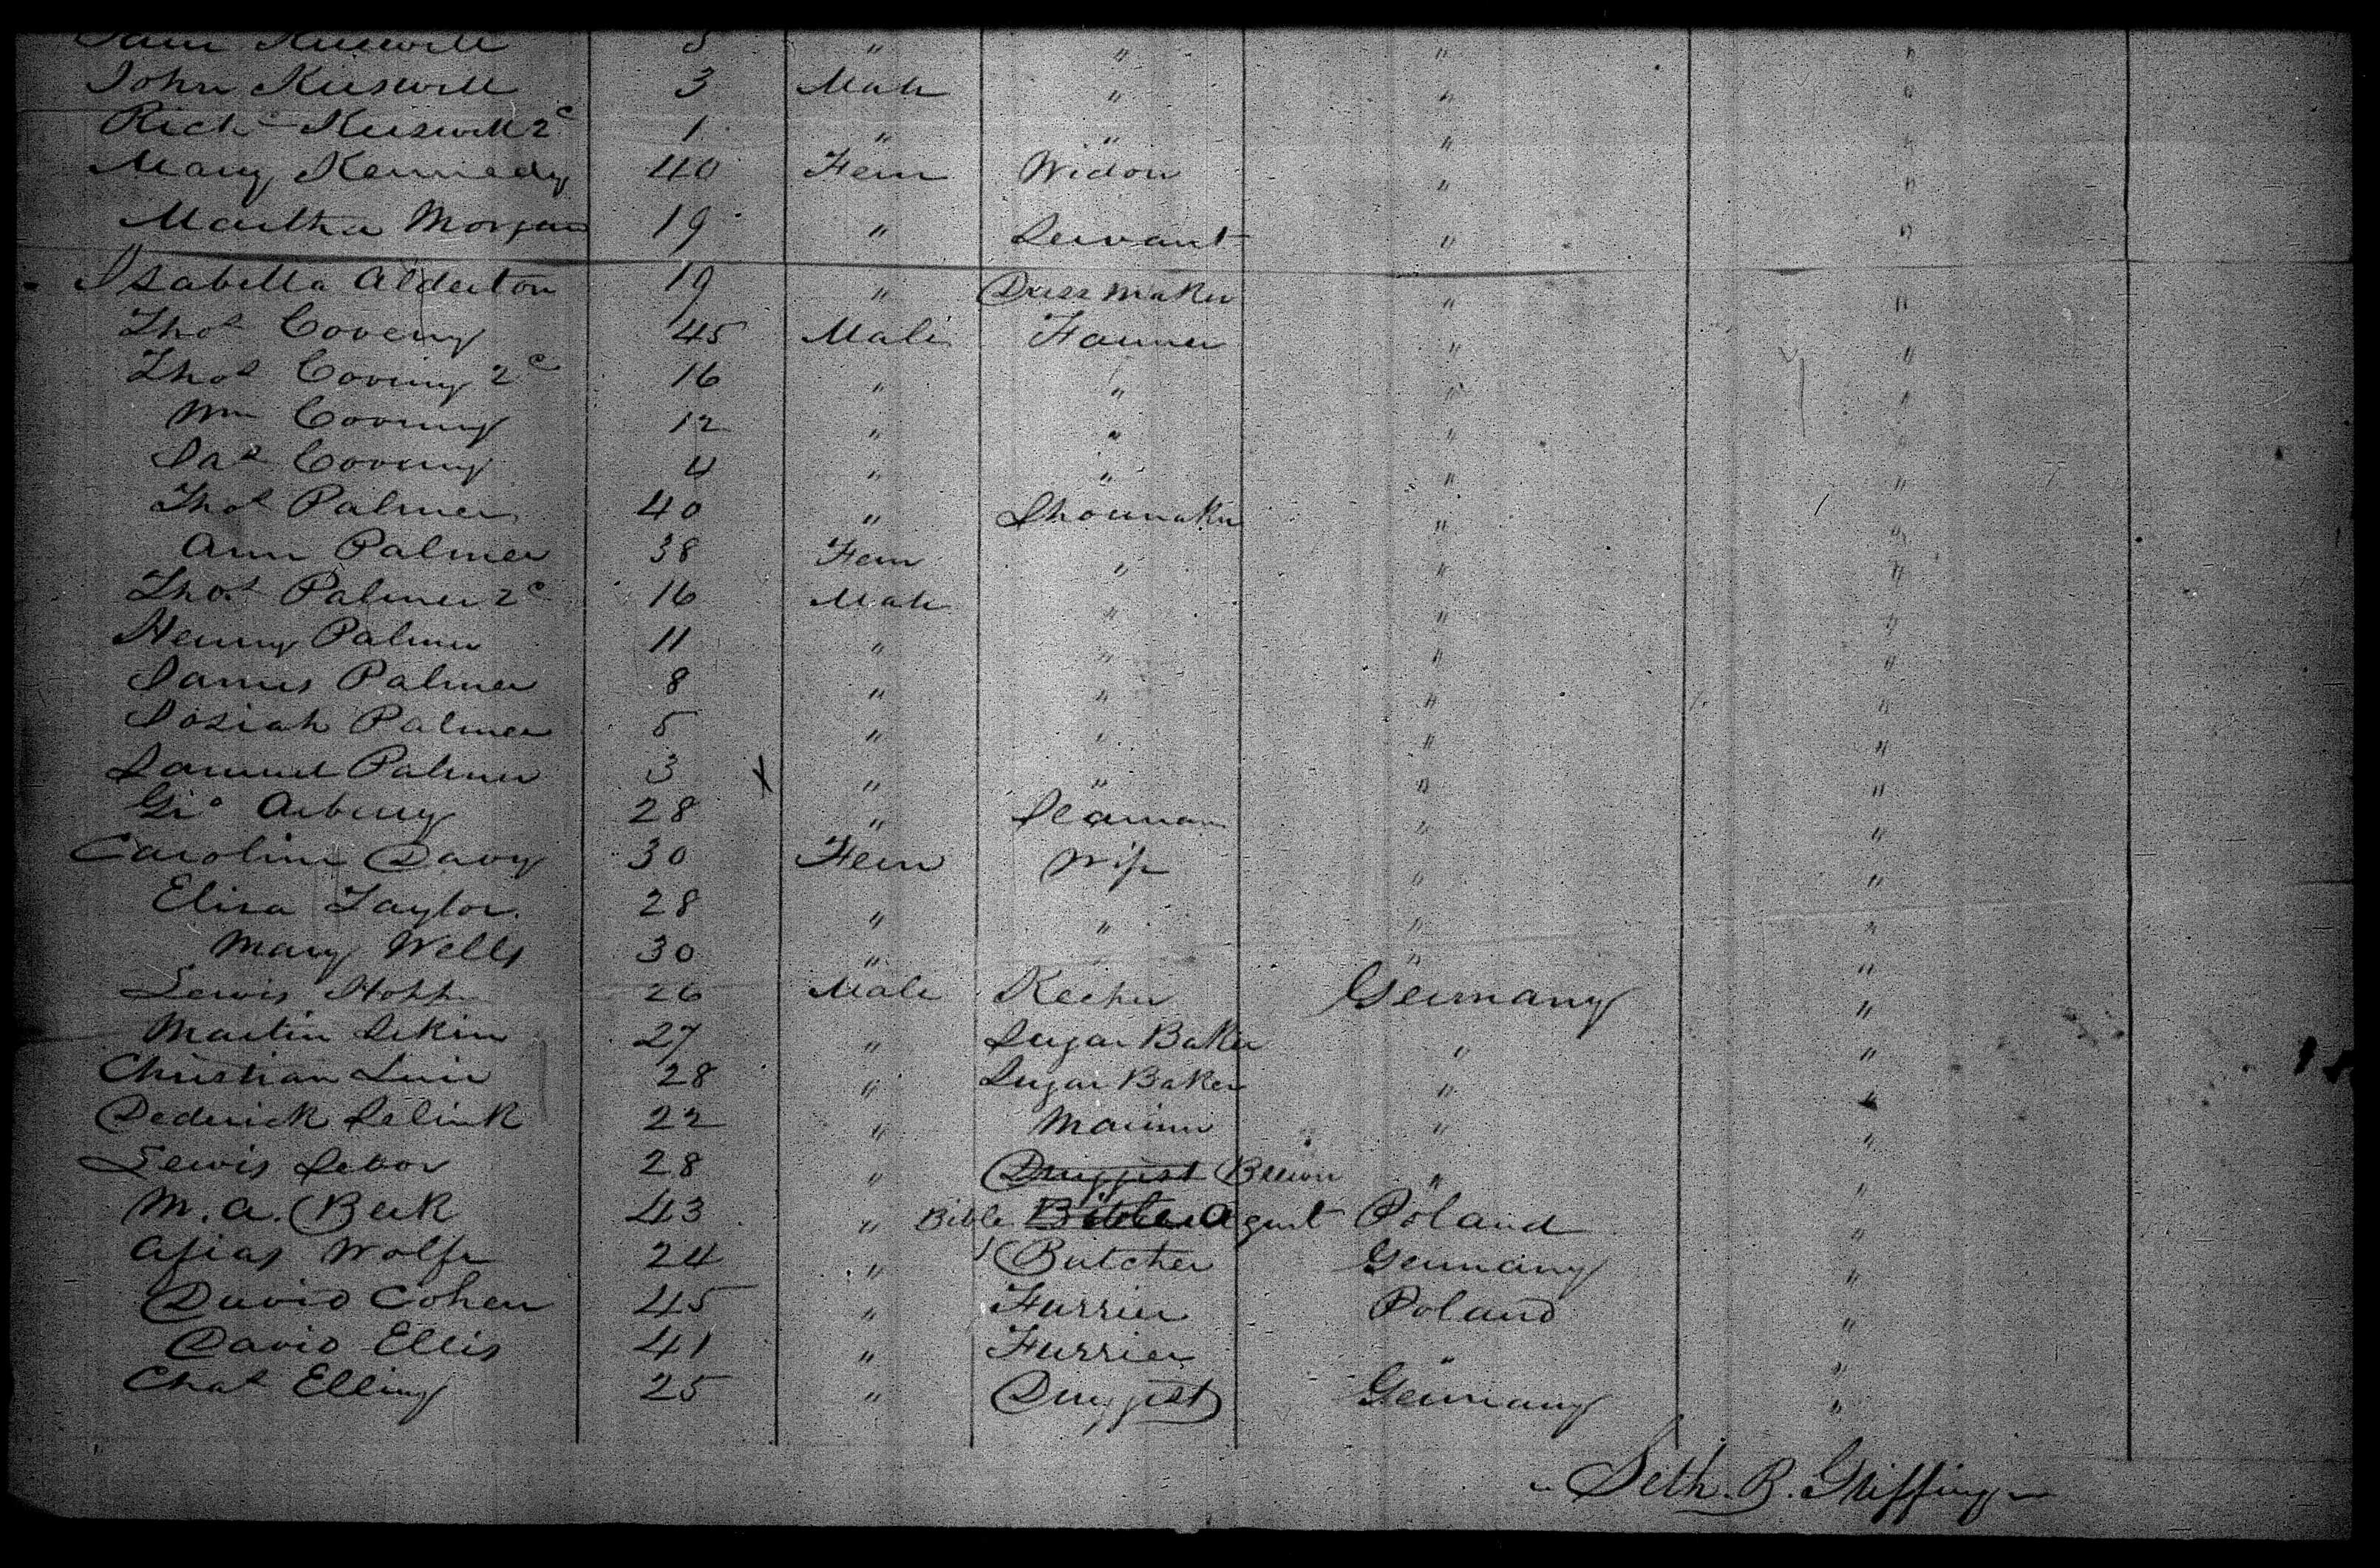 John Kieswell 3 Male " " "
Rich^d Kieswell 2^d 1 " " " "
Mary Kennedy 40 Fem Widow " "
Martha Morgan 19 " Servant " "
Isabella Alderton 19 " Dress Maker " "
Tho^s Coveny 45 Male Farmer " "
Tho^s Coveny 2^d 16 " " " "
Wm Coveny 12 " " " "
Ja^s Coveny 4 " " " "
Tho^s Palmer 40 " Shoemaker " "
Ann Palmer 38 Fem " " "
Tho^s Palmer 2^d 16 Male " " "
Henry Palmer 11 " " " "
James Palmer 8 " " " "
Josiah Palmer 5 " " " "
Samuel Palmer 3 " " " "
Geo Asbury 28 " Seaman " "
Caroline Davy 30 Fem Wife " "
Eliza Taylor 28 " " " "
Mary Wells 30 " " " "
Lewis 26 Male Germany "
Martin 27 " Sugar Baker " "
Christian 28 " Sugar Baker " "
Dederick Selink 22 " Mariner " "
Lewis Sebor 28 " Druggist Brewer " "
M. A. Berk 43 " Bible Agent Poland "
Wolfe 24 " Butcher Germany "
David Cohen 45 " Furrier Poland "
David Ellis 41 " Furrier " "
Cha^s Elling 25 " Druggist Germany "
Seth. B. Griffing